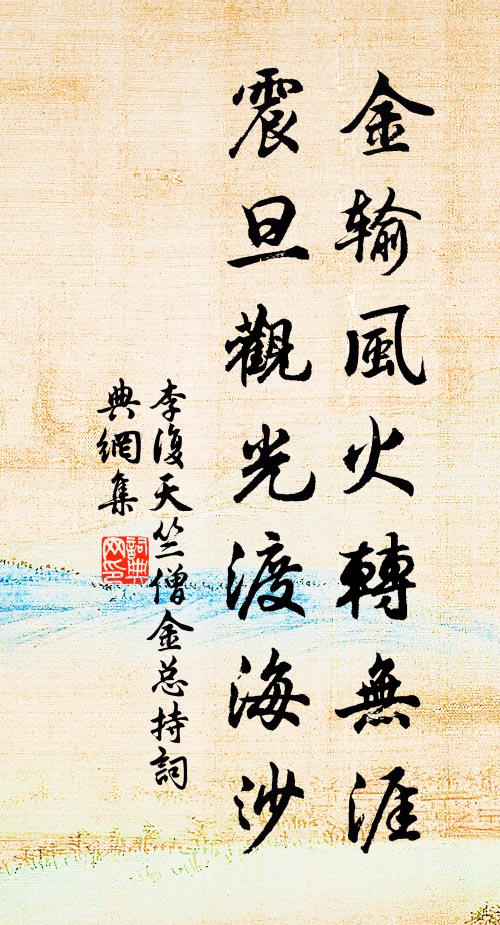 金输風火轉無涯
震旦觀光渡海沙
李復天竺僧金总持詞
典網集
詞典
网印